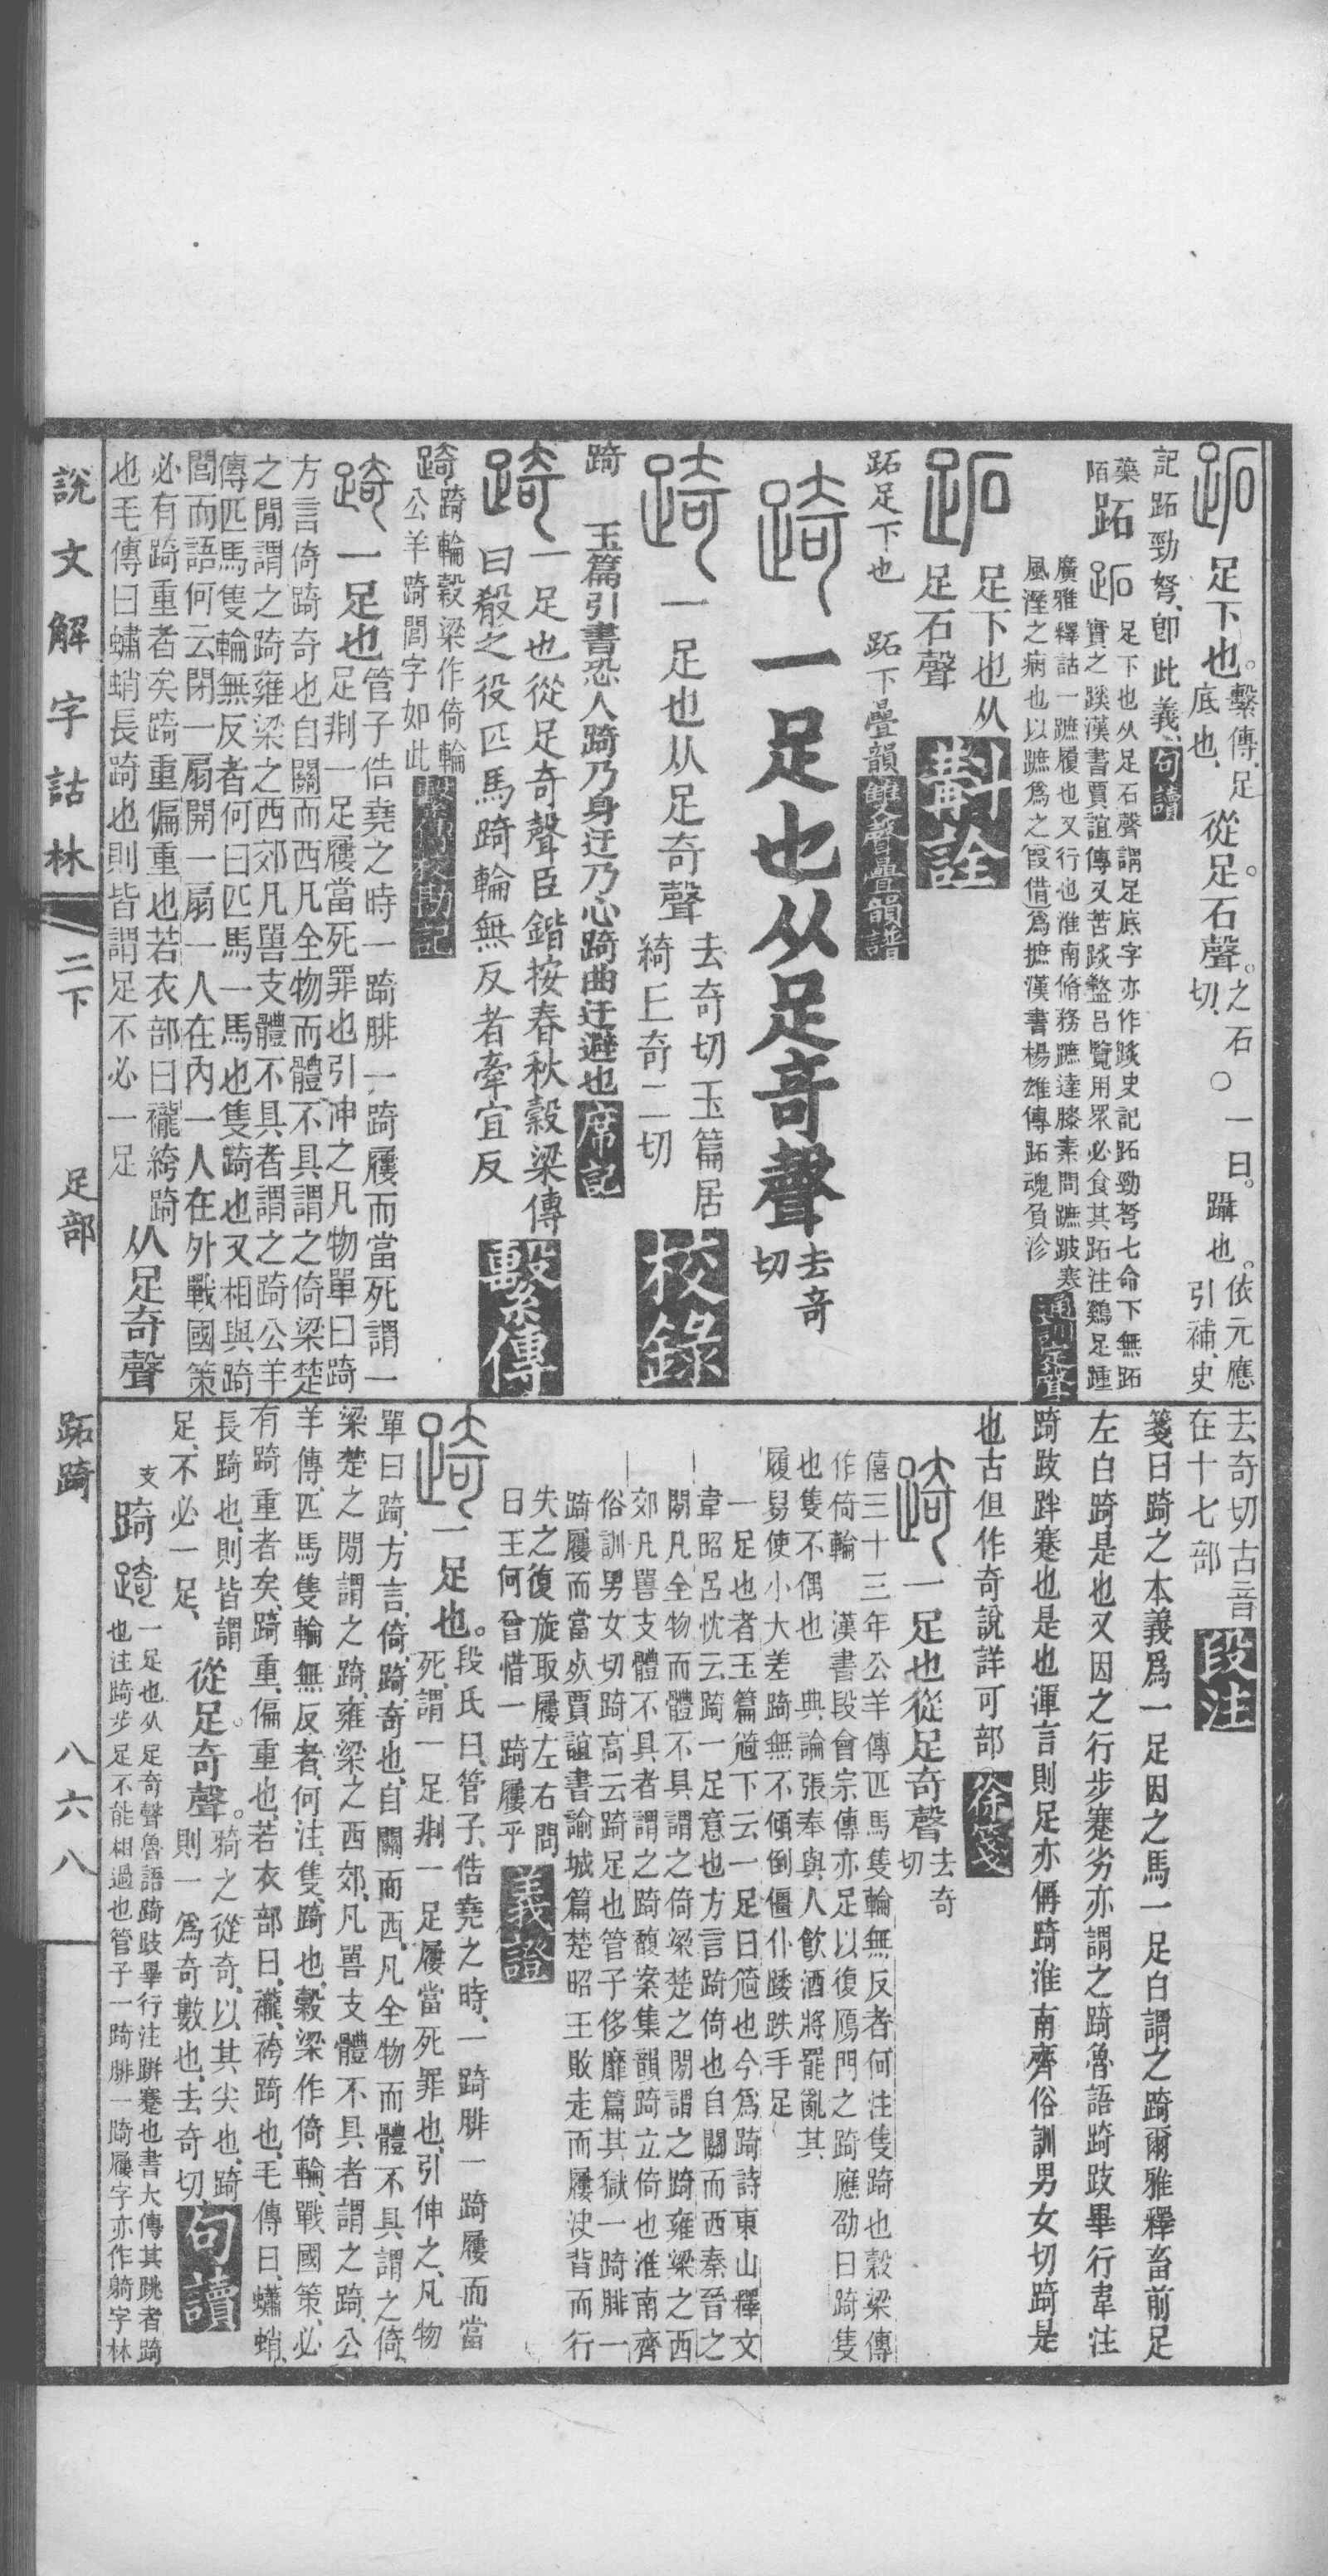 跖足下也。繫傳、足底也、從足。石聲。之石切、○一曰。躡也。依元應引補、史
記跖勁弩、卽此義、句讀
藥陌跖跖足下也从足石聲謂足底字亦作䟕史記跖勁弩七命下無跖
實之䟕漢書賈誼傳又苦䟕盭呂覽用眾必食其跖注鷄足踵
廣雅釋詁一蹠履也又行也淮南脩務蹠達膝素問蹠跛寒
風溼之病也以蹠爲之(叚借)爲摭漢書楊雄傳跖魂負沴通訓定聲
跖足下也从足石聲斠詮
跖足下也 跖下疊韻雙聲疊韻譜
踦一足也从足奇聲去奇切
踦一足也从足奇聲去奇切玉篇居綺丘奇二切校錄
踦 玉篇引書恐人踦乃身迂乃心踦曲迂避也席記
踦一足也從足奇聲臣鍇按春秋穀梁傳
曰殽之役匹馬踦輪無反者牽宜反繫傳
踦踦輪穀梁作倚輪公羊踦閭字如此繫傳校勘記
踦一足也管子俈堯之時一踦腓一踦屨而當死謂一
足剕一足屨當死罪也引伸之凡物單曰踦
方言倚踦奇也自關而西凡全物而體不具謂之倚梁楚
之閒謂之踦雍梁之西郊凡嘼支體不具者謂之踦公羊
傳匹馬隻輪無反者何曰匹馬一馬也隻踦也又相與踦
閭而語何云閉一扇開一扇一人在內一人在外戰國策
必有踦重者矣踦重偏重也若衣部曰襱絝踦
也毛傳曰蠨蛸長踦也則皆謂足不必一足从足奇聲
去奇切古音在十七部段注
箋曰踦之本義爲一足因之馬一足白謂之踦爾雅釋畜前足
左白踦是也又因之行步蹇劣亦謂之踦魯語踦跂畢行韋注
踦跂跘蹇也是也渾言則足亦偁踦淮南齊俗訓男女切踦是
也古但作奇說詳可部徐箋
踦一足也從足奇聲去奇切
僖三十三年公羊傳匹馬隻輪無反者何注隻踦也穀梁傳
作倚輪 漢書段會宗傳亦足以復鴈門之踦應劭曰踦隻
也隻不偶也 典論張奉與人飲酒將罷亂其
履舄使小大差踦無不傾倒僵仆踒跌手足
一足也者玉篇䇍下云一足曰䇍也今爲踦詩東山釋文
韋昭呂忱云踦一足意也方言踦倚也自關而西秦晉之
閒凡全物而體不具謂之倚梁楚之閒謂之踦雍梁之西
郊凡嘼支體不具者謂之踦馥案集韻踦立倚也淮南齊
俗訓男女切踦高云踦足也管子侈靡篇其獄一踦腓一
踦屨而當死賈誼書諭城篇楚昭王敗走而屨決背而行
失之復旋取屨左右問
曰王何曾惜一踦屨乎義證
踦一足也。段氏曰、管子、俈堯之時、一踦腓一踦屨而當
死、謂一足剕一足屨當死罪也、引伸之、凡物
單曰踦、方言、倚、踦、奇也、自關而西、凡全物而體不具、謂之倚、
梁楚之閒謂之踦、雍梁之西郊、凡嘼支體不具者謂之踦、公
羊傳、匹馬隻輪無反者、何注、隻、踦也、穀梁作倚輪、戰國策、必
有踦重者矣、踦重、偏重也、若衣部曰、襱、袴踦也、毛傳曰、蠨蛸、
長踦也、則皆謂足、不必一足、從足。奇聲。踦之從奇、以其尖也、踦則一爲奇數也、去奇切、句讀
支踦踦一足也从足奇聲魯語踦跂畢行注跰蹇也書大傳其跳者踦
也注踦步足不能相過也管子一踦腓一踦屨字亦作躸字林
說文解字詁林 二下 足部 跖踦 八六八